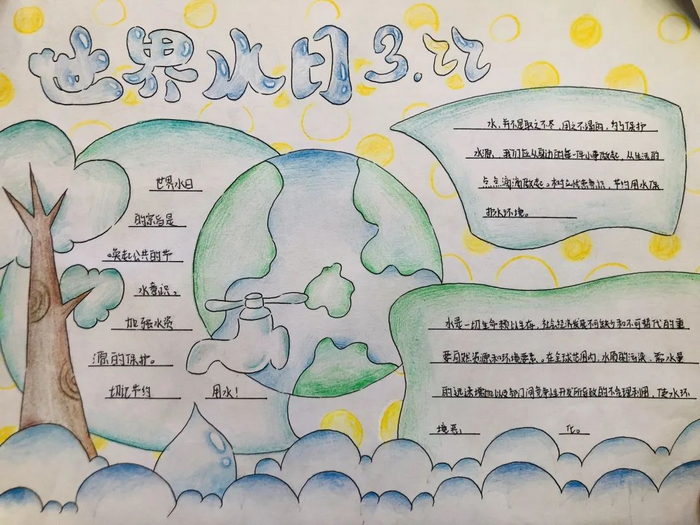 世界水日3.22
世界水日
的宗旨是
唤起公共的节
水意识。
加强水资
源的保护。
切记节约 用水！
水，并不是取之不尽，用之不竭的，为了保护
水源，我们应从身边的每一件小事做起，从生活的
点点滴滴做起。树立优患意识，节约用水保
护水环境。
水是一切生命赖以生存，社会经济发展不可缺少和不可替代的重
要自然资源和环境要素。在全球范围内，水质的污染、需水量
的迅速增加以及部门间竞争性开发所导致的不合理利用，使水环
境恶 化。